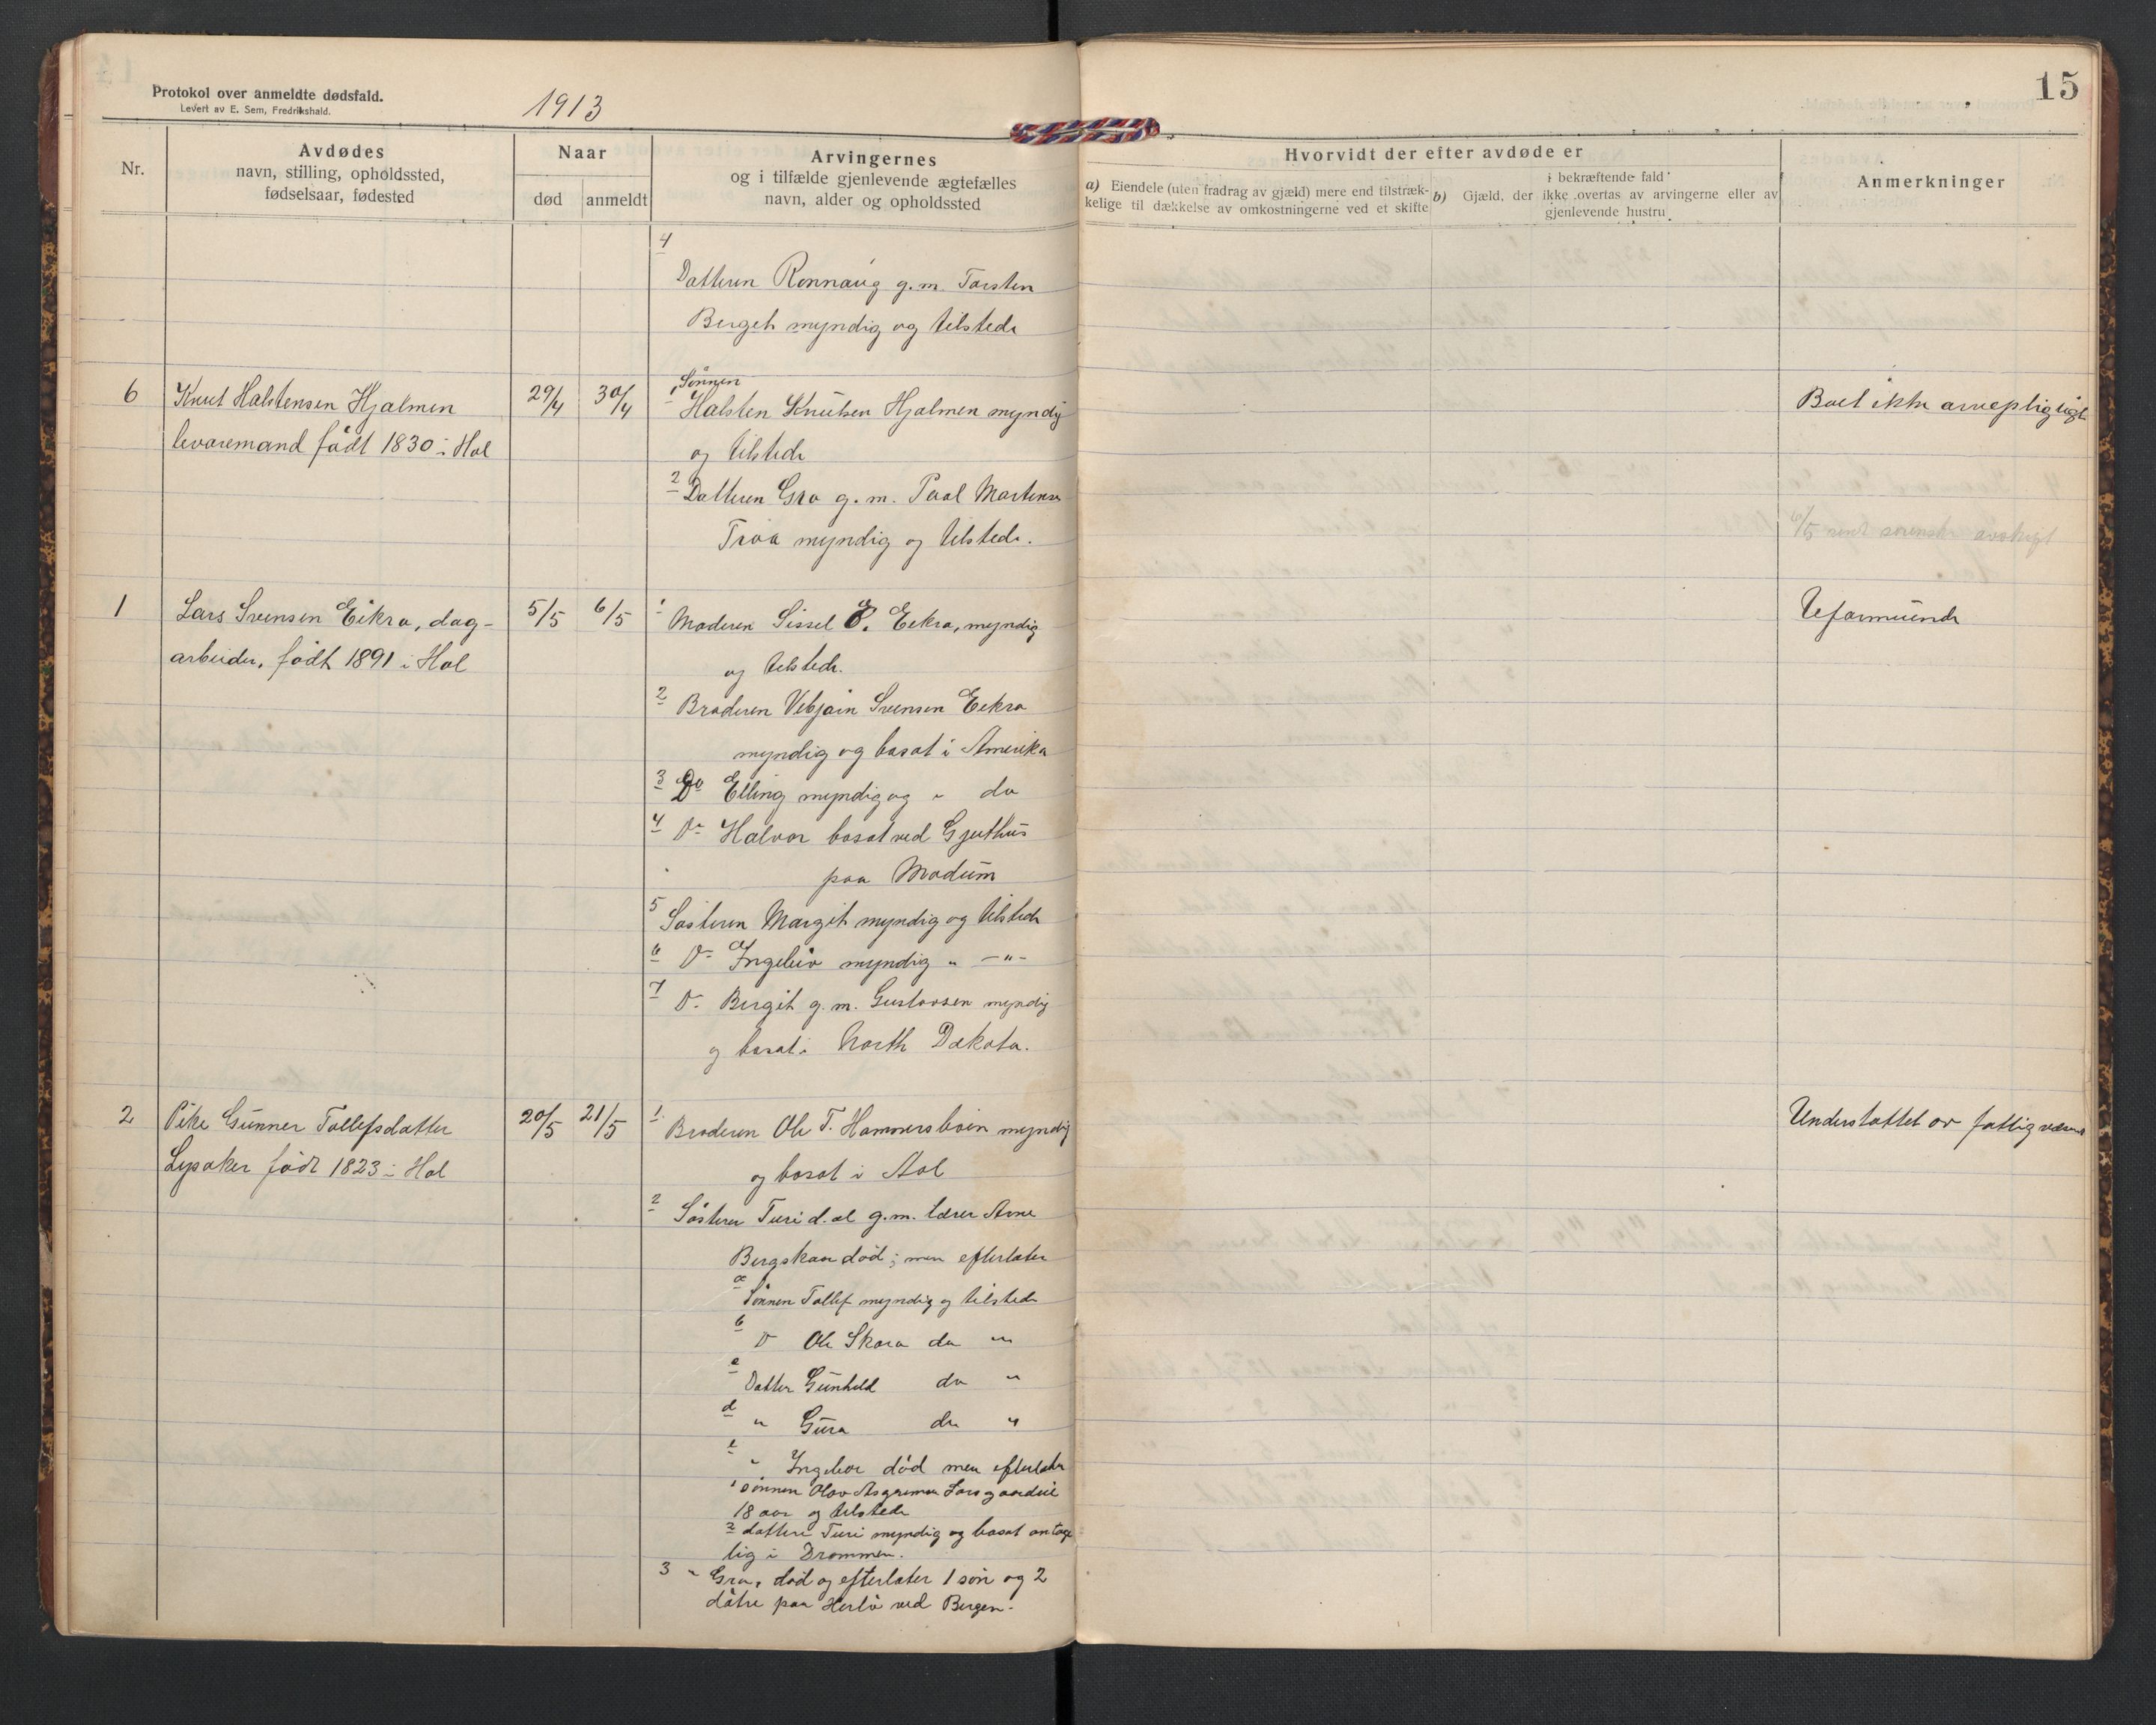 Protokol over anmeldte dødsfald.
Levert av E. Sem, Fredrikshald.
1913
Nr.
Avdødes
navn, stilling, opholdssted,
fødselsaar, fødested
Naar
død
anmeldt
Arvingernes
og i tilfælde gjenlevende ægtefælles
navn, alder og opholdssted
4
Datteren Ronnaug g.m. Torsten
Berget myndig og tilstede
6
Knut Halstensen Hjalmen
levoremand født 1830 i Hol
29/4
30/4
1 Sønnen
Halsten Knutsen Hjalmen myndig
og tilstede
2 Datteren Gro g.m. Paal Martensen
Troa myndig og tilstede.
1
Lars Svensen Eikra, dag-
arbeider, født 1891 i Hol
5/5
6/5
1 Moderen Sissel E. Eekra, myndig
og tilstede.
2 Broderen Vebjøin Svensen Eekra
myndig og bosat i Amerika
3 Do Elling myndig og " do
4 Do Halvor bosat ved Gjethus
paa Modum
5 Søsteren Margit myndig og tilstede
6 Do Ingebiør myndig " -"-
7 Do Bergit g.m. Gustavsen myndig
og bosat i North Dakota.
2
Pike Gunner Tollefsdatter
Lysaker født 1823 i Hol
20/5
21/5
1 Broderen Ole T. Hammersbøen myndig
og bosat i Aal
2 Søsteren Turi d. æl g.m. lærer Arne
Bergskaa død; men efterlater
a Sønnen Tollef myndig og tilstede
b Do Ole Skara do "
c Datter Gunhild do "
d " Guro do "
e " Ingebor død men efterlater
1 sønnen Olav Asgrimsen Larsgaardlie
18 aar og tilstede
2 dattere Turi myndig og bosat antage
lig i Drammen.
3 " Gro, død og efterlater 1 søn og 2
døtre paa Herlø ved Bergen.
15
Hvorvidt der efter avdøde er
a) Eiendele (uten fradrag av gjæld) mere end tilstræk-
kelige til dækkelse av omkostningerne ved et skifte
i bekræftende fald
b) Gjæld, der ikke overtas av arvingerne eller av
gjenlevende hustru
Anmerkninger
Boet ikke arvepligtigt
6/5 sendt sorenskr avskrift
Uformuende
Understøttet av fattigvæsenet